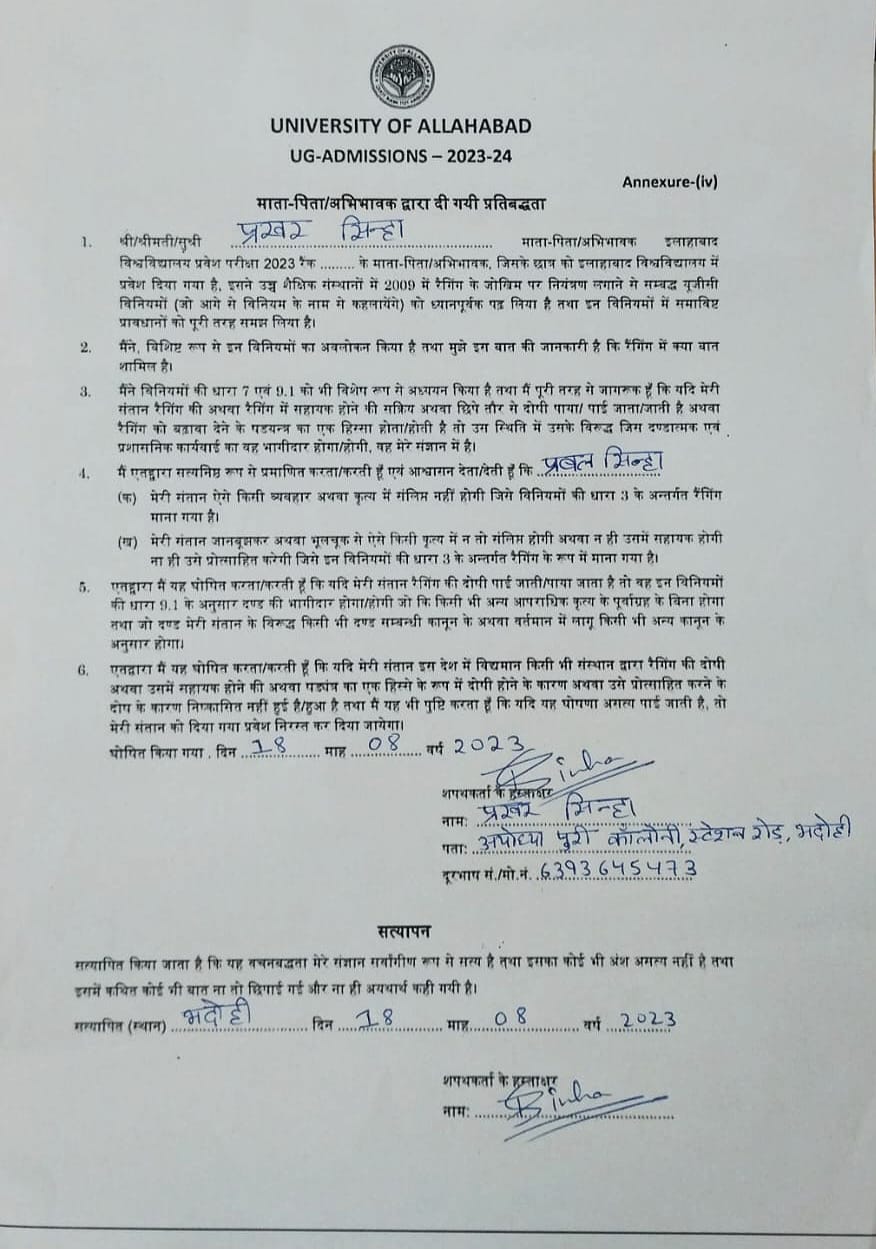 UNIVERSITY OF ALLAHABAD
UG-ADMISSIONS – 2023-24
Annexure-(iv)
माता-पिता/अभिभावक द्वारा दी गयी प्रतिबद्धता
1. श्री/श्रीमती/सुश्री प्रखर सिन्हा माता-पिता/अभिभावक इलाहाबाद
विश्वविद्यालय प्रवेश परीक्षा 2023 रैंक ......... के माता-पिता/अभिभावक, जिसके छात्र को इलाहाबाद विश्वविद्यालय में
प्रवेश दिया गया है, इसने उच्च शैक्षिक संस्थानों में 2009 में रैगिंग के जोखिम पर नियंत्रण लगाने से सम्बद्ध यूजीसी
विनियमों (जो आगे से विनियम के नाम से कहलायेंगे) को ध्यानपूर्वक पढ़ लिया है तथा इन विनियमों में समाविष्ट
प्रावधानों को पूरी तरह समझ लिया है।
2. मैंने, विशिष्ट रूप से इन विनियमों का अवलोकन किया है तथा मुझे इस बात की जानकारी है कि रैगिंग में क्या बात
शामिल है।
3. मैंने विनियमों की धारा 7 एवं 9.1 को भी विशेष रूप से अध्ययन किया है तथा मैं पूरी तरह से जागरूक हूँ कि यदि मेरी
संतान रैगिंग की अथवा रैगिंग में सहायक होने की सक्रिय अथवा छिपे तौर से दोपी पाया/ पाई जाता/जाती है अथवा
रैगिंग को बढ़ावा देने के षडयन्त्र का एक हिस्सा होता/होती है तो उस स्थिति में उसके विरूद्ध जिस दण्डात्मक एवं
प्रशासनिक कार्यवाई का वह भागीदार होगा/होगी, वह मेरे संज्ञान में है।
4. मैं एतद्वारा सत्यनिष्ठ रूप से प्रमाणित करता/करती हूँ एवं आश्वासन देता/देती हूँ कि प्रबल सिन्हा
(क) मेरी संतान ऐसे किसी व्यवहार अथवा कृत्य में संलिप्त नहीं होगी जिसे विनियमों की धारा 3 के अन्तर्गत रैगिंग
माना गया है।
(ख) मेरी संतान जानबूझकर अथवा भूलचूक से ऐसे किसी कृत्य में न तो संलिप्त होगी अथवा न ही उसमें सहायक होगी
ना ही उसे प्रोत्साहित करेगी जिसे इन विनियमों की धारा 3 के अन्तर्गत रैगिंग के रूप में माना गया है।
5. एतद्वारा मैं यह घोषित करता/करती हूँ कि यदि मेरी संतान रैगिंग की दोपी पाई जाती/पाया जाता है तो वह इन विनियमों
की धारा 9.1 के अनुसार दण्ड की भागीदार होगा/होगी जो कि किसी भी अन्य आपराधिक कृत्य के पूर्वाग्रह के बिना होगा
तथा जो दण्ड मेरी संतान के विरूद्ध किसी भी दण्ड सम्बन्धी कानून के अथवा वर्तमान में लागू किसी भी अन्य कानून के
अनुसार होगा।
6. एतद्वारा मैं यह घोषित करता/करती हूँ कि यदि मेरी संतान इस देश में विद्यमान किसी भी संस्थान द्वारा रैगिंग की दोपी
अथवा उसमें सहायक होने की अथवा षड्यंत्र का एक हिस्से के रूप में दोपी होने के कारण अथवा उसे प्रोत्साहित करने के
दोप के कारण निष्कासित नहीं हुई है/हुआ है तथा मैं यह भी पुष्टि करता हूँ कि यदि यह घोषणा असत्य पाई जाती है, तो
मेरी संतान को दिया गया प्रवेश निरस्त कर दिया जायेगा।
घोषित किया गया . दिन 18 माह 08 वर्ष 2023
Sinha
शपथकर्ता के हस्ताक्षर
नाम: प्रखर सिन्हा
पता: अयोध्या पुरी कॉलोनी, स्टेशन रोड़, भदोही
दूरभाप सं./मो.नं. 6393645473
सत्यापन
सत्यापित किया जाता है कि यह वचनबद्धता मेरे संज्ञान सर्वांगीण रूप से सत्य है तथा इसका कोई भी अंश असत्य नहीं है तथा
इसमें कथित कोई भी बात ना तो छिपाई गई और ना ही अयथार्थ कही गयी है।
सत्यापित (स्थान) भदोही दिन 18 माह 08 वर्ष 2023
शपथकर्ता के हस्ताक्षर
नाम: Sinha